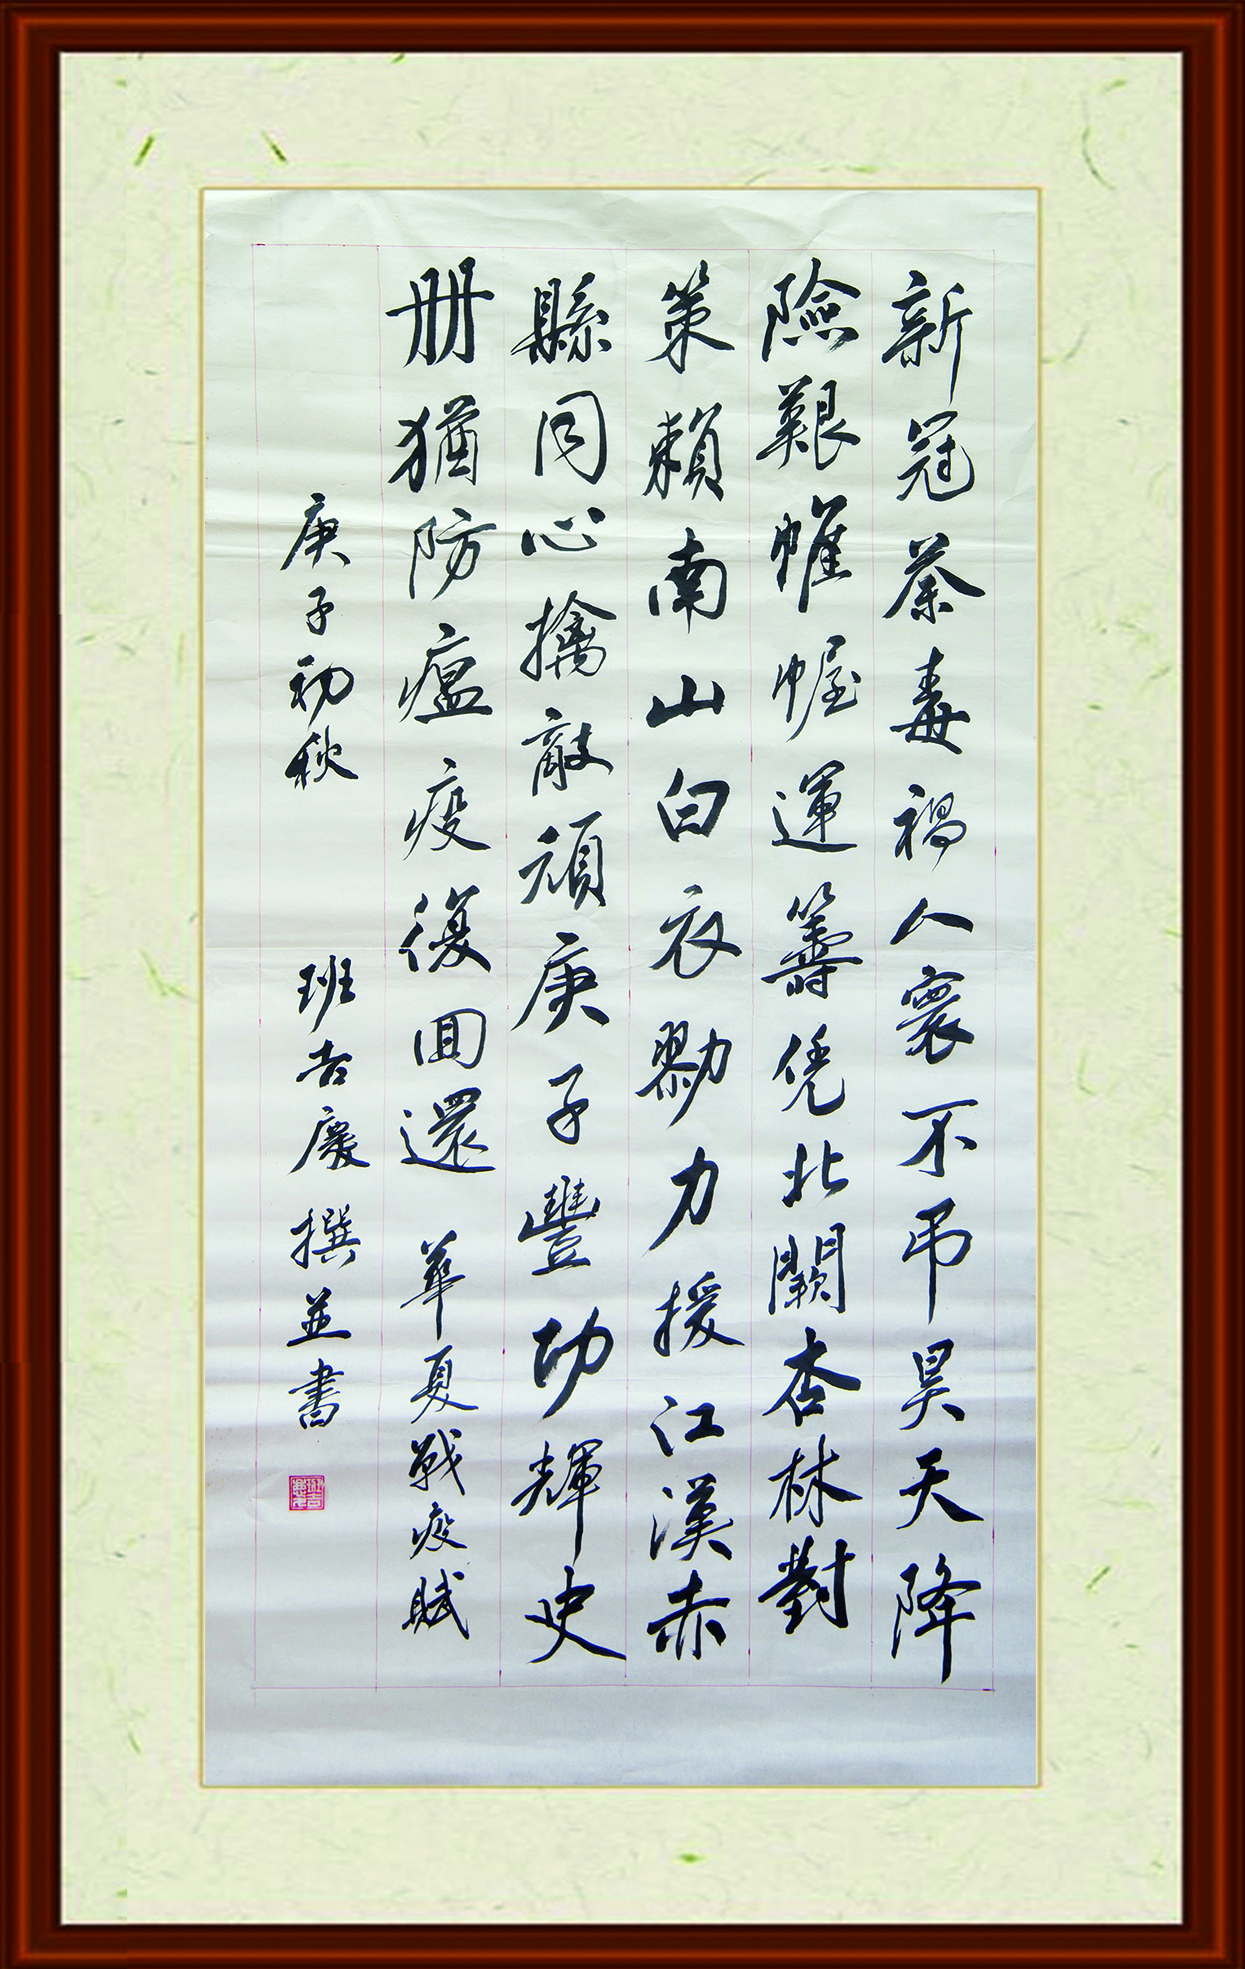 新冠荼毒禍人寰不弔昊天降
險艱帷幄運籌凭北闕杏林對
策賴南山白衣勠力援江漢赤
縣同心擒敵頑庚子豐功輝史
册猶防瘟疫復回還 華夏戰疫賦
庚子初秋 班吉慶撰並書